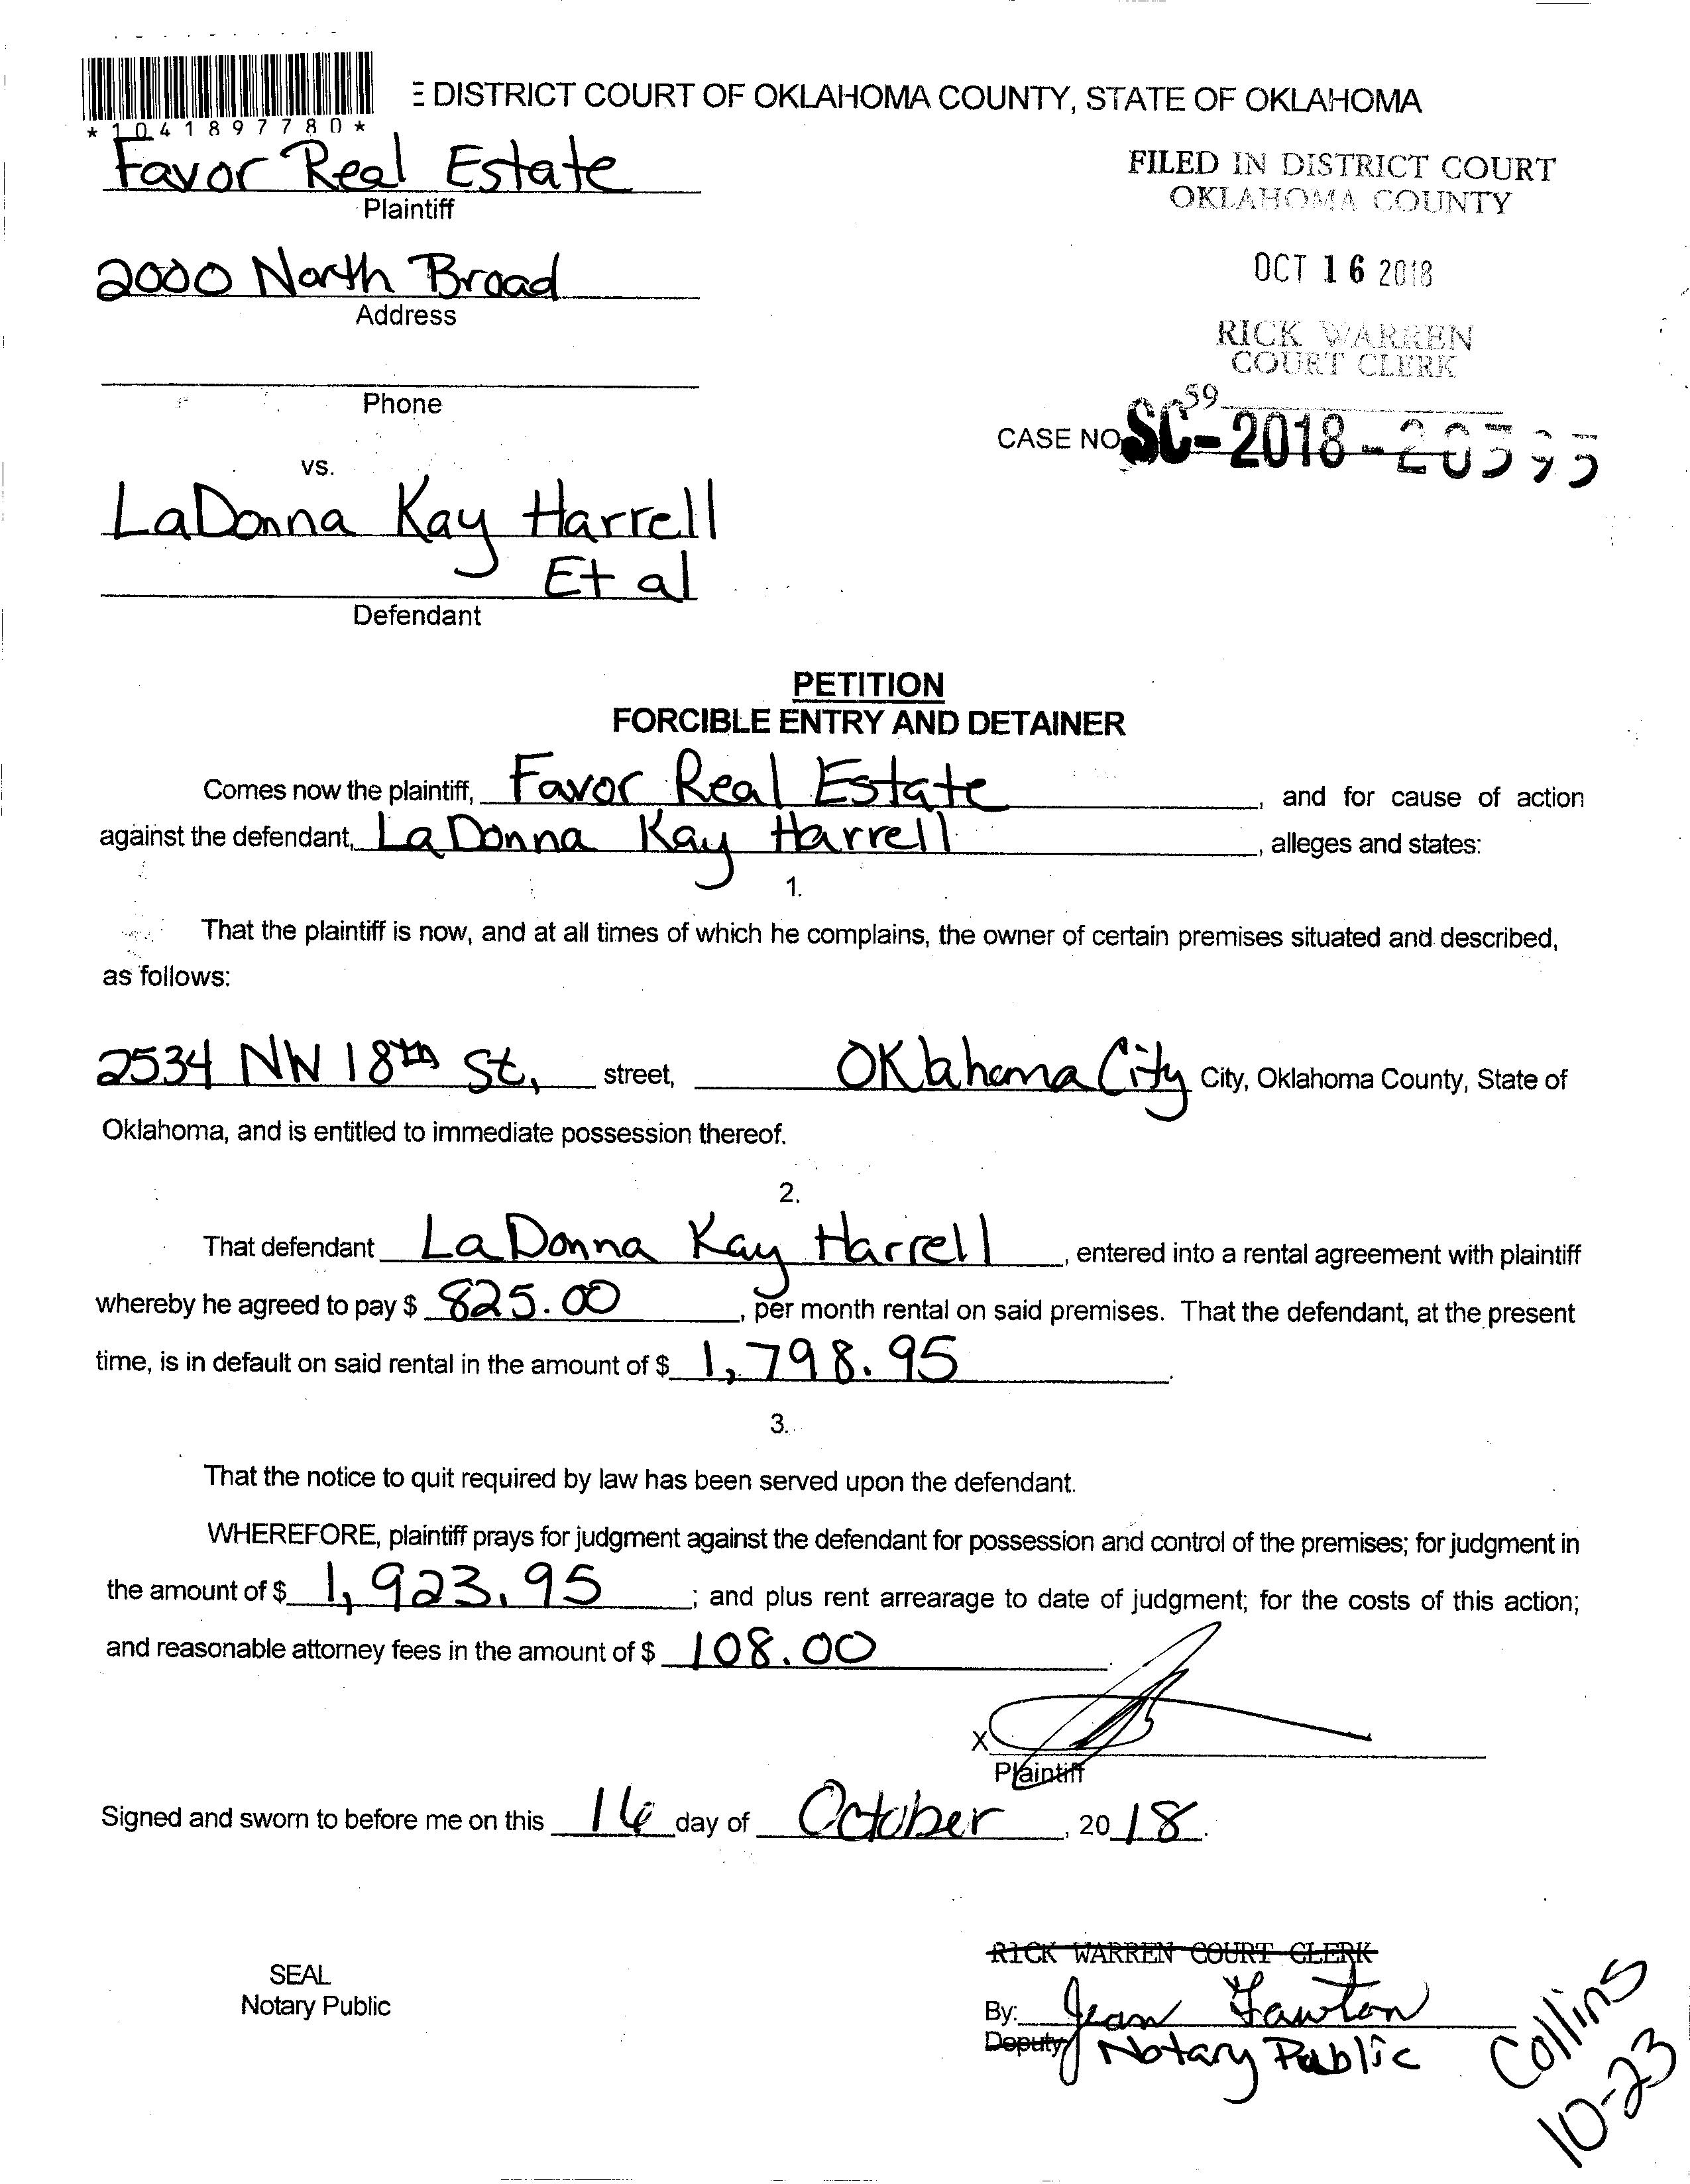 *1041897780*
E DISTRICT COURT OF OKLAHOMA COUNTY, STATE OF OKLAHOMA
Favor Real Estate
Plaintiff
FILED IN DISTRICT COURT
OKLAHOMA COUNTY
2000 North Broad
Address
OCT 16 2018
RICK WARREN
COURT CLERK
Phone
59
CASE NO. SC-2018-20595
vs.
LaDonna Kay Harrell
Et al
Defendant
PETITION
FORCIBLE ENTRY AND DETAINER
Comes now the plaintiff, Favor Real Estate, and for cause of action
against the defendant, LaDonna Kay Harrell, alleges and states:
1.
That the plaintiff is now, and at all times of which he complains, the owner of certain premises situated and described,
as follows:
2534 NW 18th St, street, Oklahoma City City, Oklahoma County, State of
Oklahoma, and is entitled to immediate possession thereof.
2.
That defendant LaDonna Kay Harrell, entered into a rental agreement with plaintiff
whereby he agreed to pay $ 825.00, per month rental on said premises. That the defendant, at the present
time, is in default on said rental in the amount of $ 1,798.95.
3.
That the notice to quit required by law has been served upon the defendant.
WHEREFORE, plaintiff prays for judgment against the defendant for possession and control of the premises; for judgment in
the amount of $ 1,923.95; and plus rent arrearage to date of judgment; for the costs of this action;
and reasonable attorney fees in the amount of $ 108.00.
X
Plaintiff
Signed and sworn to before me on this 16 day of October, 2018.
RICK WARREN COURT CLERK
SEAL
Notary Public
By: Jean Lawton
Deputy Notary Public
Collins
10-23